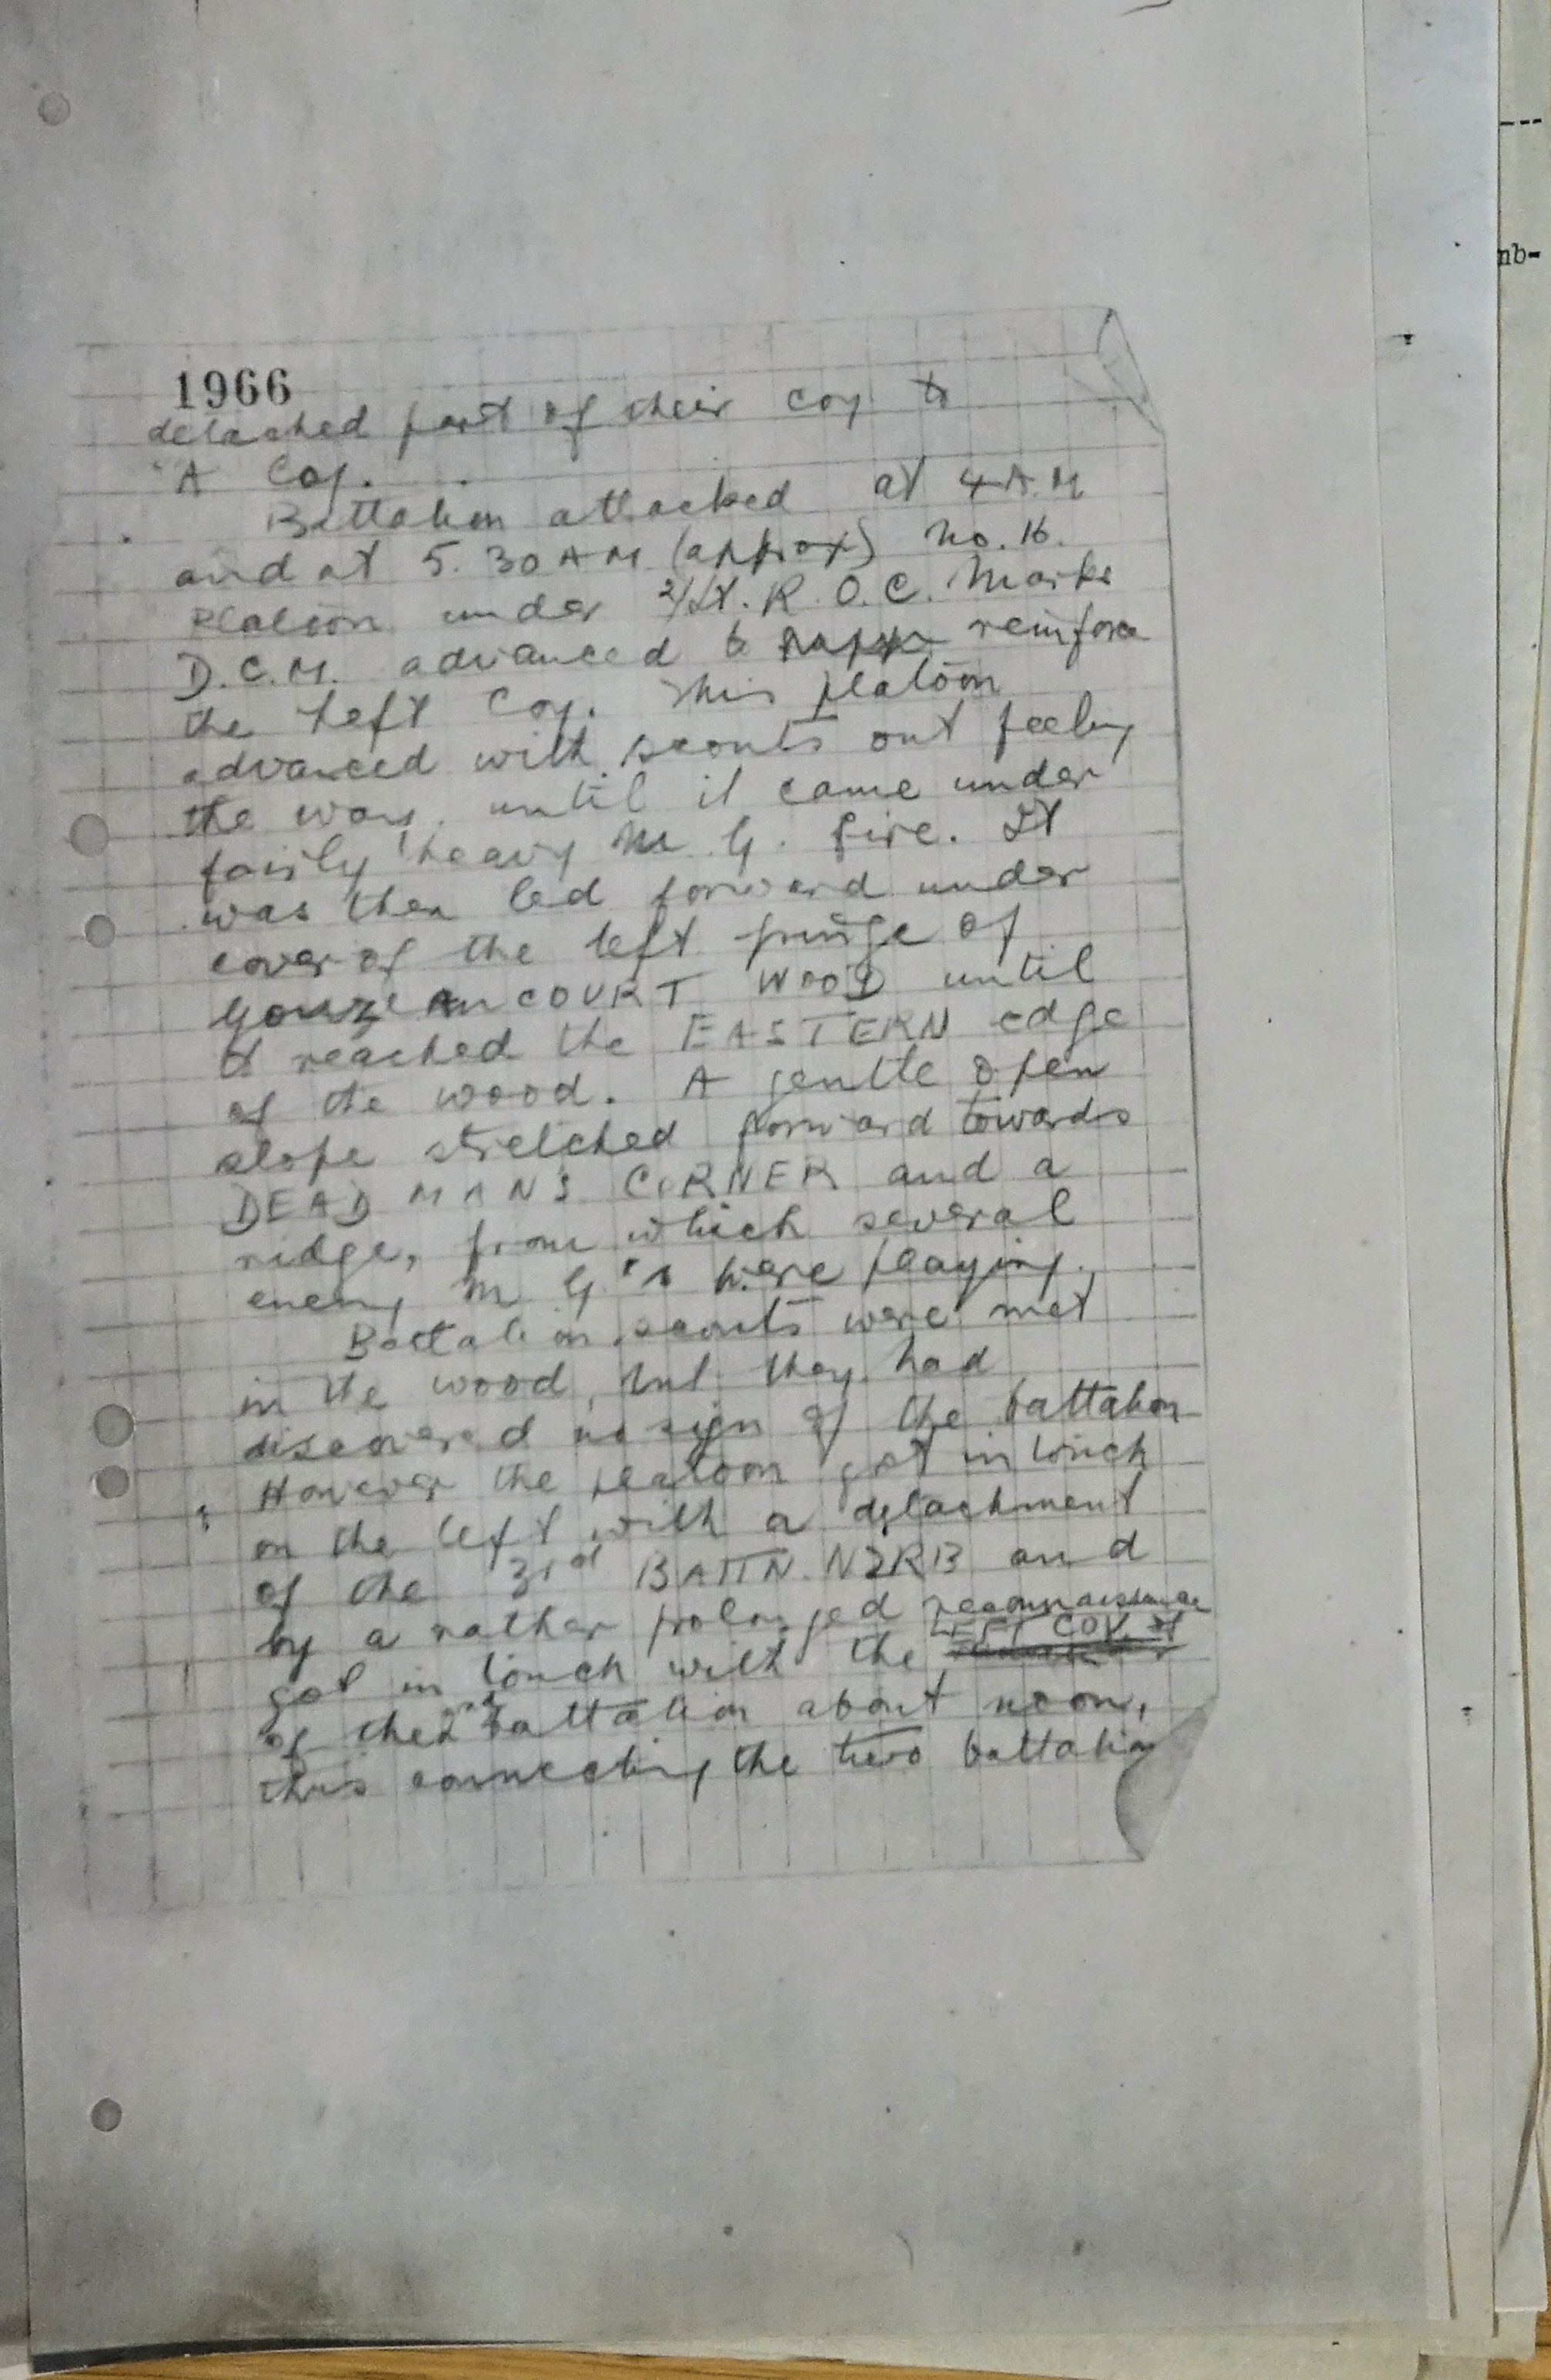 ---
nb-
1966
detached part of their coy to
"A Coy.
Battalion attacked at 4 A.M
and at 5.30 AM (approx) No. 16.
Platoon under 2/Lt. R.O.C. Marks
D.C.M. advanced to reinforce
the Left Coy. This platoon
advanced with scouts out feeling
the way, until it came under
fairly heavy M.G. fire. It
was then led forward under
cover of the left fringe of
GouzeAuCOURT WOOD until
it reached the EASTERN edge
of the wood. A gentle open
slope stretched forward towards
DEAD MANS CORNER and a
ridge, from which several
enemy M G.'s were playing.
Battalion scouts were met
in the wood, but they had
discovered no sign of the battalion
However the platoon got in touch
on the left with a detachment
of the 3rd BATTN. NZRB and
by a rather prolonged reconnaissance
LEFT COY.
got in touch with the
of the 2nd battalion about noon,
thus connecting the two battalions